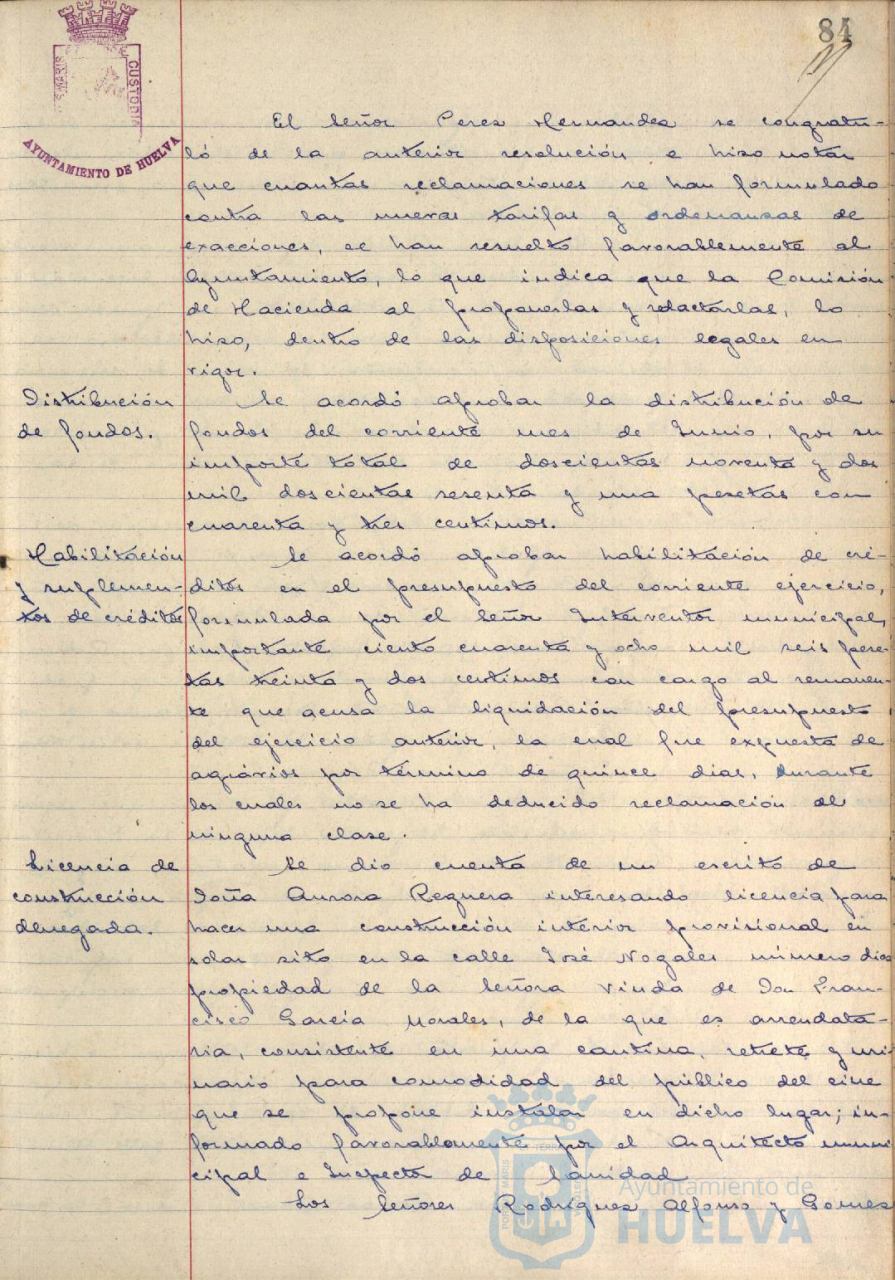 84
PORTUS MARIS
CUSTODIA
AYUNTAMIENTO DE HUELVA
El Señor Perez Hernandez se congratu-
ló de la anterior resolución e hizo notar
que cuantas reclamaciones se han formulado
contra las nuevas tarifas y ordenanzas de
exacciones, se han resuelto favorablemente al
Ayuntamiento, lo que indica que la Comisión
de Hacienda al proponerlas y redactarlas, lo
hizo, dentro de las disposiciones legales en
vigor.
Distribución
de fondos.
Se acordó aprobar la distribución de
fondos del corriente mes de Junio, por su
importe total de doscientas noventa y dos
mil doscientas sesenta y una pesetas con
cuarenta y tres centimos.
Habilitación
y suplemen-
tos de créditos
Se acordó aprobar habilitación de cré-
ditos en el presupuesto del corriente ejercicio,
formulada por el Señor Interventor municipal,
importante ciento cuarenta y ocho mil seis pese-
tas treinta y dos centimos con cargo al remanen-
te que acusa la liquidación del presupuesto
del ejercicio anterior, la cual fue expuesta de
agrávios por término de quince dias, durante
los cuales no se ha deducido reclamación de
ninguna clase.
Licencia de
construcción
denegada.
Se dio cuenta de un escrito de
Doña Aurora Requera interesando licencia para
hacer una construcción interior provisional en
solar sito en la calle José Nogales número dos
propiedad de la Señora Viuda de Don Fran-
cisco García Morales, de la que es arrendata-
ria, consistente en una cantina, retrete y uri
nario para comodidad del público del cine
que se propone instalar en dicho lugar; in-
formado favorablemente por el Arquitecto muni
cipal e Inspector de Sanidad
Los Señores Rodríguez Alfonso y Gomez
Ayuntamiento de
HUELVA